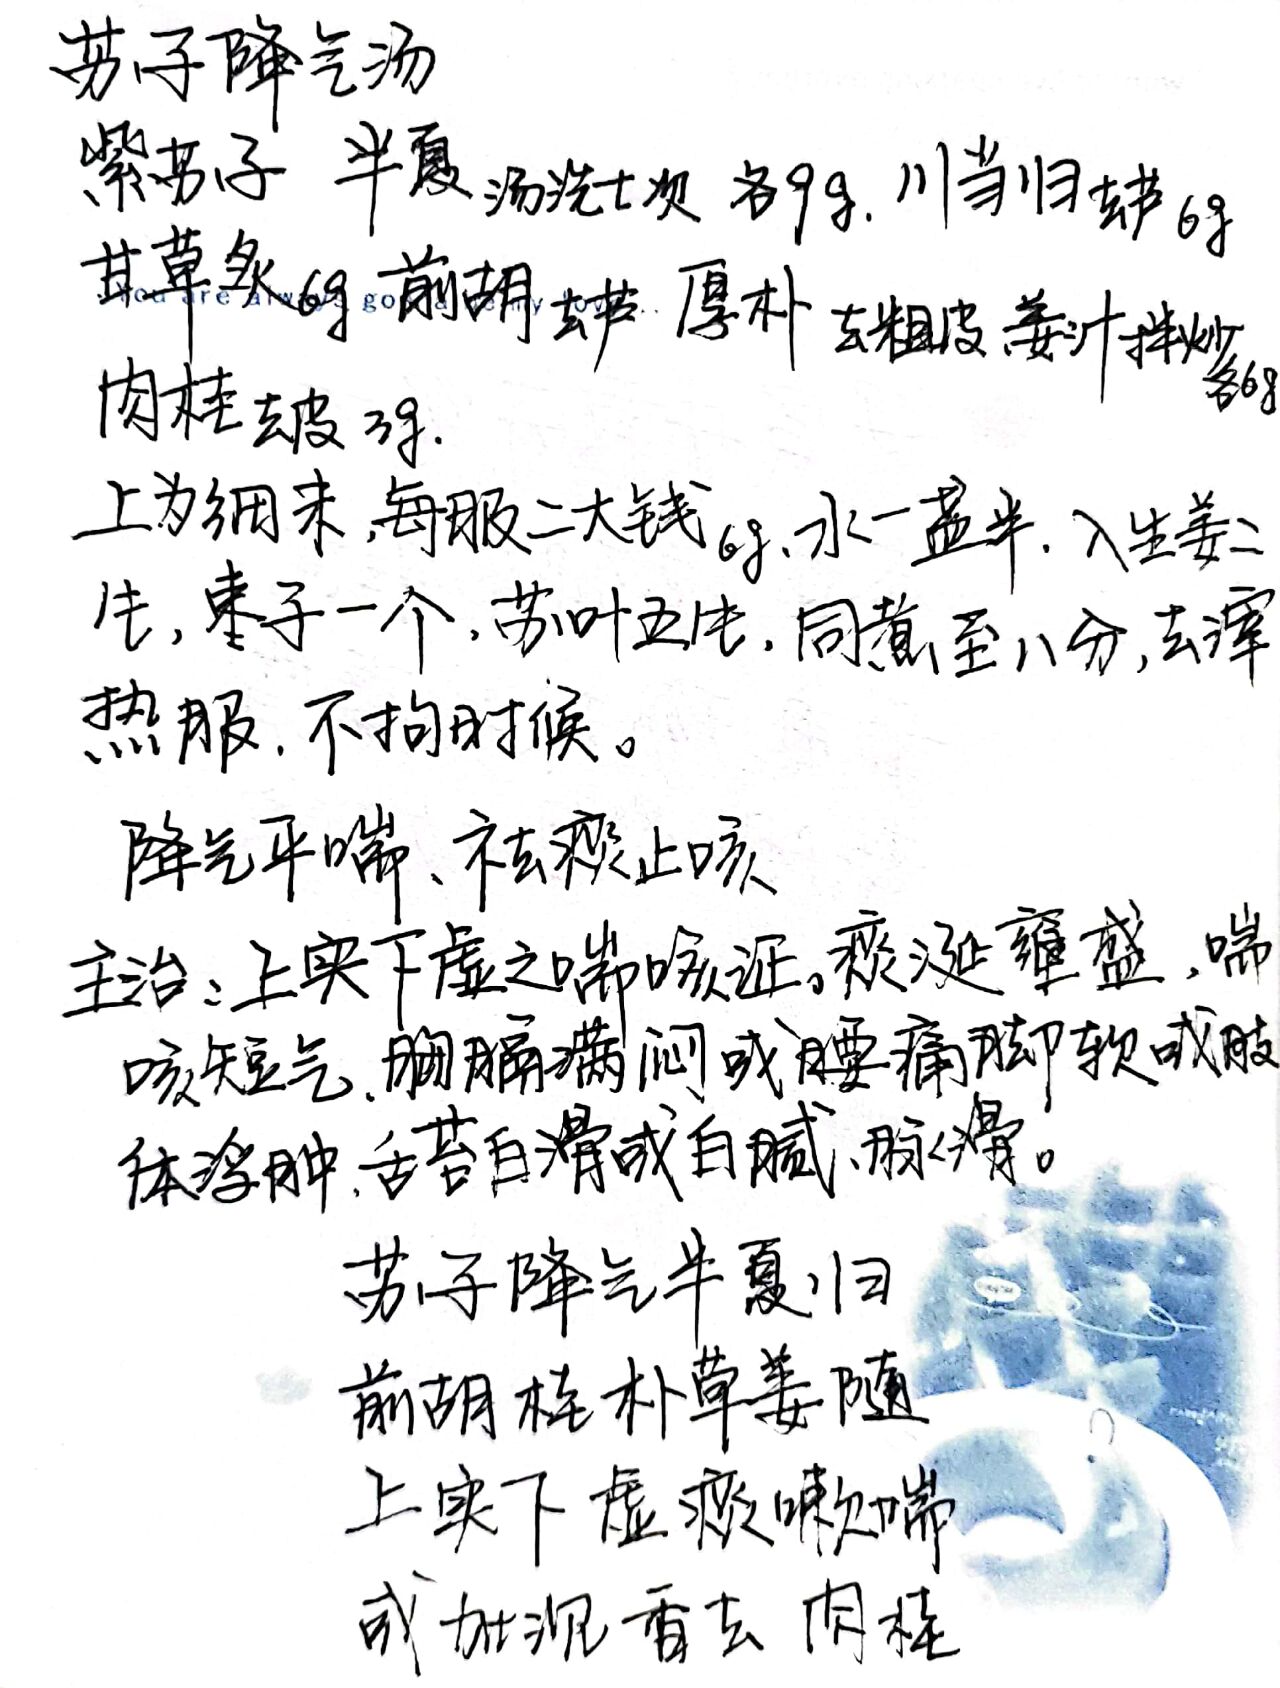 苏子降气汤
紫苏子 半夏 汤洗七次 各9g. 川当归 去芦 6g
甘草炙 6g 前胡 去芦 厚朴 去粗皮 姜汁拌炒 各6g
肉桂 去皮 3g.
上为细末,每服二大钱 6g、水一盏半.入生姜二
片,枣子一个,苏叶五片,同煮至八分,去滓
热服.不拘时候。
降气平喘、祛痰止咳
主治:上实下虚之喘咳证。痰涎壅盛,喘
咳短气.胸膈满闷或腰痛脚软或肢
体浮肿.舌苔白滑或白腻、脉滑。
苏子降气半夏归
前胡桂朴草姜随
上实下虚痰嗽喘
或加沉香去肉桂